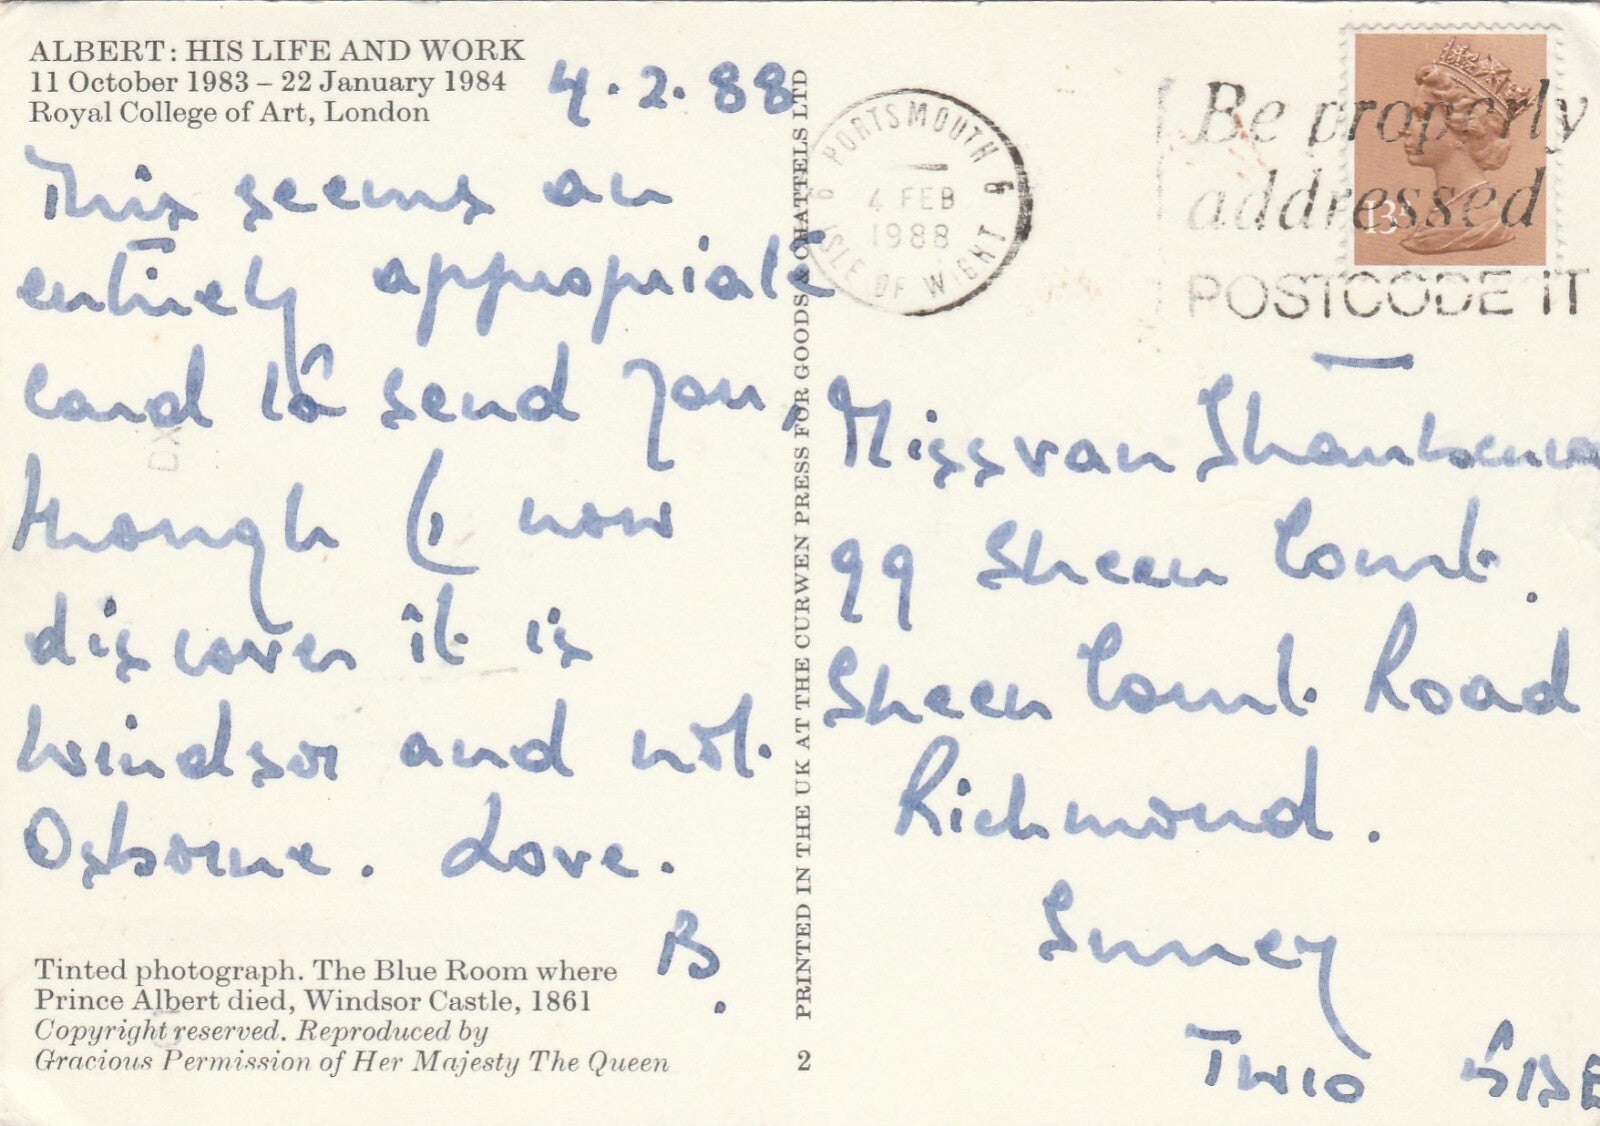 ALBERT: HIS LIFE AND WORK
11 October 1983 – 22 January 1984
Royal College of Art, London
4.2.88
This seems an
entirely appropriate
card to send you,
though I now
discover it is
Windsor and not
Osborne. Love.
B.
Tinted photograph. The Blue Room where
Prince Albert died, Windsor Castle, 1861
Copyright reserved. Reproduced by
Gracious Permission of Her Majesty The Queen
PRINTED IN THE UK AT THE CURWEN PRESS FOR GOODS & CHATTELS LTD
2
PORTSMOUTH
6 6
4 FEB
1988
ISLE OF WIGHT
Be properly
addressed
POSTCODE IT
13p
Miss van
99 Sheen Court.
Sheen Court Road
Richmond.
Surrey
TW10